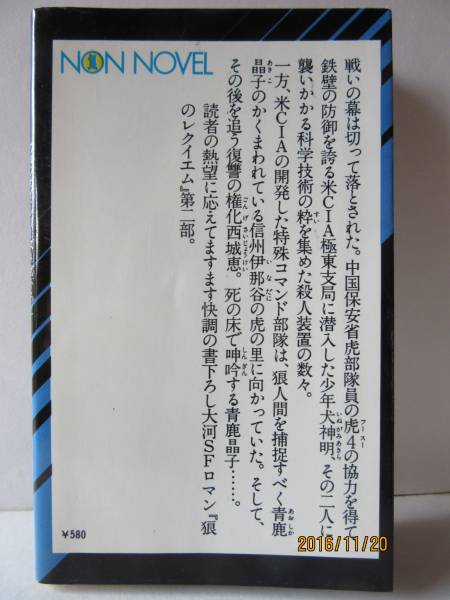 NON NOVEL
戦いの幕は切って落とされた。中国保安省虎部隊員の虎4の協力を得て
鉄壁の防御を誇る米CIA極東支局に潜入した少年犬神明、その二人に
襲いかかる科学技術の粋を集めた殺人装置の数々。
一方、米CIAの開発した特殊コマンド部隊は、狼人間を捕捉すべく青鹿
晶子のかくまわれている信州伊那谷の虎の里に向かっていた。そして、
その後を追う復讐の権化西城恵。死の床で呻吟する青鹿晶子……。
読者の熱望に応えてますます快調の書下ろし大河SFロマン『狼
のレクイエム』第二部。
¥580
2016/11/20